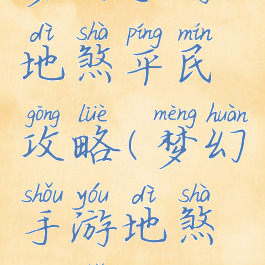 dì shà píng mín
地煞平民
gōng lüè mèng huàn
攻略(梦幻
shǒu yóu dì shà
手游地煞